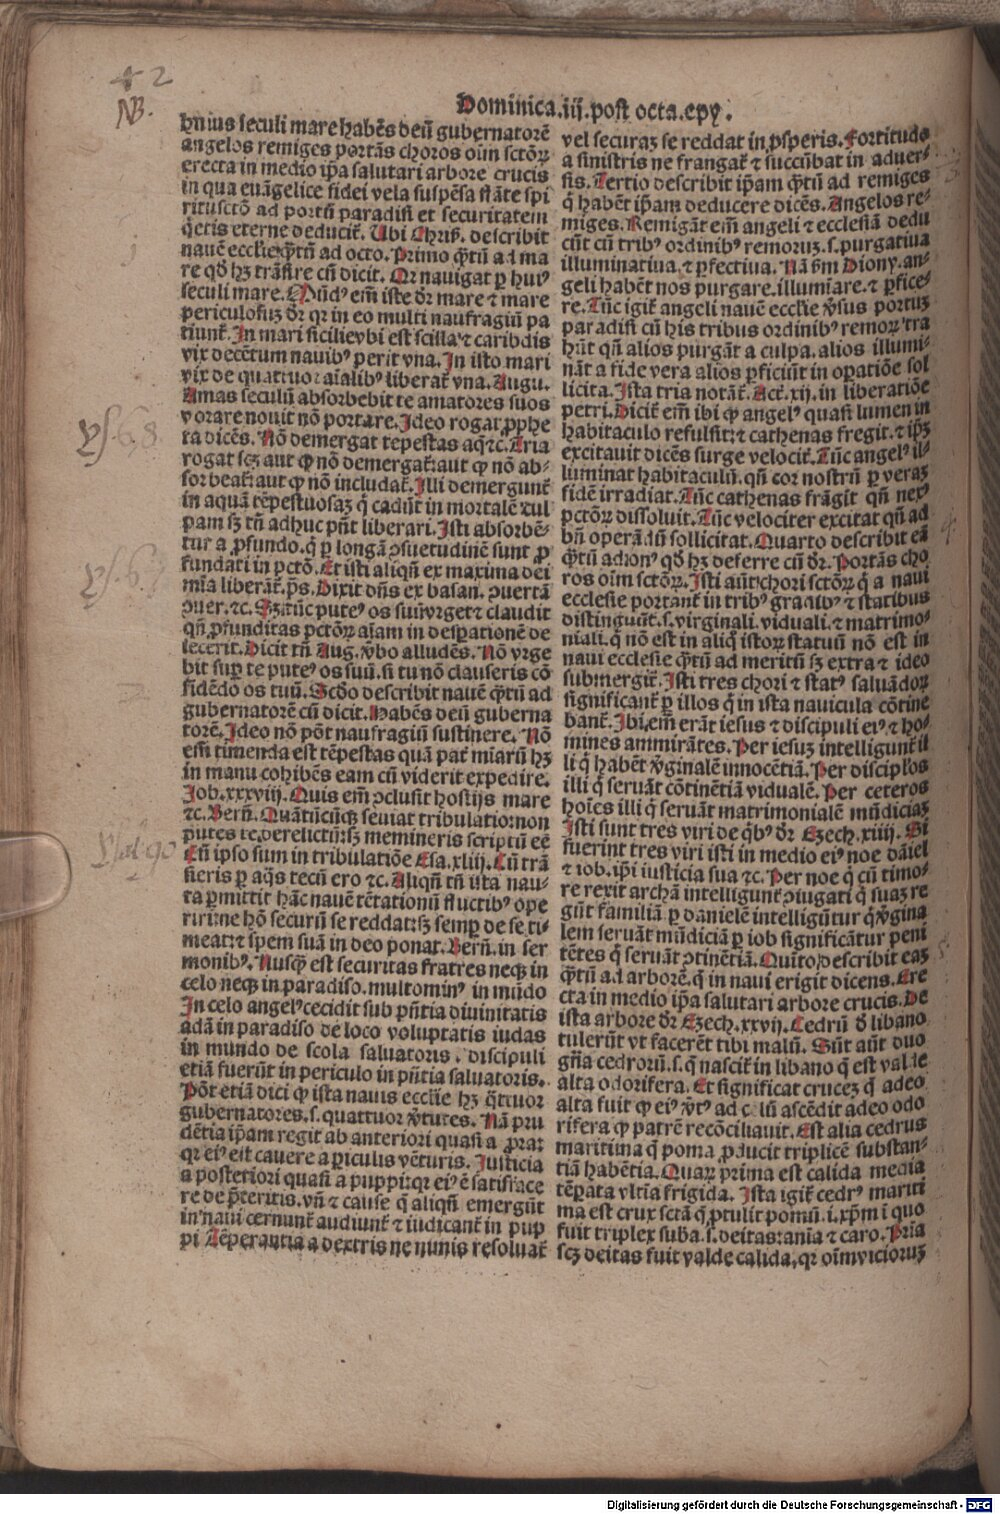 + 2
NB.
Dominica.iij.post octa.epy.
huius seculi mare habēs deū gubernatorē
angelos remiges portās choros oīm sctōꝝ
erecta in medio ip̄a salutari arbore crucis
in qua euāgelice fidei vela suspēsa flāte spi
ritusctō ad portū paradisi et securitatem
q̄etis eterne deducit᷑. Ubi Chrisᷤ. describit
nauē ecclie q̄tū ad octo. Primo q̄tū ad ma
re qd̓ hꝫ trāsire cū dicit. Qr nauigat ꝑ huiꝰ
seculi mare. Mūdꝰ em̄ iste dr̄ mare ⁊ mare
periculosuꝫ dr̄ qr in eo multi naufragiū pa
tiunt᷑. In mari sicilie vbi est scilla ⁊ caribdis
vix decētum nauibꝰ perit vna. In isto mari
vix de quattuor aīalibꝰ liberat᷑ vna. Augu.
Amas seculū absorbebit te amatores suos
vorare nouit nō portare. Ideo rogat ꝓphe
ta dicēs. Nō demergat tēpestas aq̄ ⁊c. Tria
rogat scꝫ aut ꝙ nō demergat᷑: aut ꝙ nō ab-
sorbeat᷑: aut ꝙ nō includat᷑. Illi demergunt᷑
in aquā tēpestuosaꝫ q̄ cadūt in mortalē cul
pam sꝫ tn̄ adhuc pn̄t liberari. Isti absorbē-
tur a ꝓfundo. q̄ ꝑ longā ꝯsuetudinē sunt ꝓ
fundati in pctō. Et isti aliqn̄ ex maxima dei
mīa liberāt᷑. ps̄. Dixit dn̄s ex basan. ꝯuertā
ꝯuer. ⁊c. Sꝫ tūc puteꝰ os suū vrget ⁊ claudit
qn̄ ꝓfunditas pctōꝝ aīam in desꝑationē de
iecerit. Dicit tn̄ Aug. v̄bo alludēs. Nō vrge
bit suꝑ te puteꝰ os suū. si tu nō clauseris cō
fidēdo os tuū. Scd̓o describit nauē q̄tū ad
gubernatorē cū dicit. Habēs deū guberna
torē. Ideo nō pōt naufragiū sustinere. Nō
em̄ timenda est tēpestas quā pat᷑ mīarū hꝫ
in manu cohibēs eam cū viderit expedire.
Iob. xxxviij. Quis em̄ ꝯclusit hostijs mare
⁊c. Bern̄. Quātūcūqꝫ seuiat tribulatio: non
putes te derelictū: sꝫ memineris scriptū eē
Cū ipso sum in tribulatiōe Esa. xliij. Cū trā
sieris ꝑ aq̄s tecū ero ⁊c. Aliqn̄ tn̄ ista nau-
ta permittit hāc nauē tētationū fluctibꝰ ope
riri: ne hō securū se reddat: sꝫ semꝑ de se ti-
meat: ⁊ spem suā in deo ponat. Bern̄. in ser
monibꝰ. Nusq̄ est securitas fratres neqꝫ in
celo neqꝫ in paradiso. multominꝰ in mūdo
In celo angelꝰ cecidit sub pn̄tia diuinitatis
adā in paradiso de loco voluptatis iudas
in mundo de scola saluatoris. discipuli
etiā fuerūt in periculo in pn̄tia saluatoris.
Pōt etiā dici ꝙ ista nauis ecclie hꝫ q̄ttuor
gubernatores. s. quattuor v̄tutes. Nā pru
dētia ip̄am regit ab anteriori quasi a ꝓra:
qr eiꝰ est cauere a ꝑiculis vēturis. Iusticia
a posteriori quasi a puppi: qr eiꝰ ē satisfrace
re de p̄teritis. vn̄ ⁊ cause q̄ aliqn̄ emergūt
in naui cernunt᷑ audiunt᷑ ⁊ iudicant᷑ in pup
pi Tēperantia a dextris ne nimis resoluat᷑
vel securaꝫ se reddat in ꝓsperis. Fortitudo
a sinistris ne frangat᷑ ⁊ succūbat in aduer-
sis. Tertio describit ip̄am q̄tū ad remiges
q̄ habēt ip̄am deducere dicēs. Angelos re-
miges. Remigāt em̄ angeli ⁊ ecclesiā dedu
cūt cū tribꝰ ordinibꝰ remoruꝫ. s. purgatiua
illuminatiua. ⁊ ꝑfectiua. Nā s̄m Diony. an-
geli habēt nos purgare. illumīare. ⁊ ꝑfice-
re. Tūc igit᷑ angeli nauē ecclie v̄sus portuꝫ
paradisi cū his tribus ordinibꝰ remoꝝ tra
hūt qn̄ alios purgāt a culpa. alios illumi-
nāt a fide vera alios ꝑficiūt in oꝑatiōe sol
licita. Ista tria notāt᷑. Act᷑. xij. in liberatiōe
petri. Dicit᷑ em̄ ibi ꝙ angelꝰ quasi lumen in
habitaculo refulsit: ⁊ cathenas fregit. ⁊ ip̄ꝫ
excitauit dicēs surge velocit᷑. Tūc angelꝰ il-
luminat habitaculū. qn̄ cor nostrū ꝑ veraꝫ
fidē irradiat. Tūc cathenas frāgit qn̄ nexꝰ
pctōꝝ dissoluit. Tūc velociter excitat qn̄ ad
bn̄ operādū sollicitat. Quarto describit eā
q̄tū ad hon̄ qd̓ hꝫ deferre cū dr̄. Portās cho
ros oīm sctōꝝ. Isti aūt chori sctōꝝ q̄ a naui
ecclesie portant᷑ in tribꝰ gradibꝰ ⁊ statibus
distinguūt. s. virginali. viduali. ⁊ matrimo-
niali. q̄ nō est in aliq̄ istoꝝ statuū nō est in
naui ecclesie q̄tū ad meritū sꝫ extra ⁊ ideo
submergit᷑. Isti tres chori ⁊ statꝰ saluādoꝝ
significant᷑ ꝑ illos q̄ in ista nauicula cōtine
bant᷑. Ibi em̄ erāt iesus ⁊ discipuli eiꝰ ⁊ ho-
mines ammirātes. Per iesuꝫ intelligunt᷑ il
li q̄ habēt v̄ginalē innocētiā. Per discipl̓os
illi q̄ seruāt cōtinētiā vidualē. Per ceteros
hoīes illi q̄ seruāt matrimonialē mūdiciaꝫ
Isti sunt tres viri de q̄bꝰ dr̄ Ezech. xiiij. Si
fuerint tres viri isti in medio eiꝰ noe dāiel
⁊ iob. ip̄i iusticia sua ⁊c. Per noe q̄ cū timo-
re rexit archā intelligunt᷑ ꝯiugati q̄ suaꝫ re
gūt familiā ꝑ danielē intelligūtur q̄ v̄gina
lem seruāt mūdiciā ꝑ iob significātur peni
tētes q̄ seruāt ꝯtinētiā. Quīto describit eaꝫ
q̄tū ad arborē. q̄ in naui erigit dicens. Ere
cta in medio ip̄a salutari arbore crucis. De
ista arbore dr̄ Ezech. xxvij. Cedrū d̓ libano
tulerūt vt facerēt tibi malū. Sūt aūt duo
gn̄a cedrorū. s. q̄ nascit᷑ in libano q̄ est valde
alta odorifera. Et significat cruceꝫ q̄ adeo
alta fuit ꝙ eiꝰ v̄tꝰ ad celū ascēdit adeo odo
rifera ꝙ patrē recōciliauit. Est alia cedrus
maritima q̄ poma ꝓducit triplicē substan-
tiā habētia. Quaꝝ prima est calida media
tēꝑata vltīa frigida. Ista igit᷑ cedrꝰ mariti
ma est crux sctā q̄ ꝓtulit pomū. i. xp̄m ī quo
fuit triplex suba. s. deitas: anīa ⁊ caro. Pria
scꝫ deitas fuit valde calida, qr oīm vicioruꝫ
ps. 68.
ps. 6
psal. 90
Digitalisierung gefördert durch die Deutsche Forschungsgemeinschaft - DFG